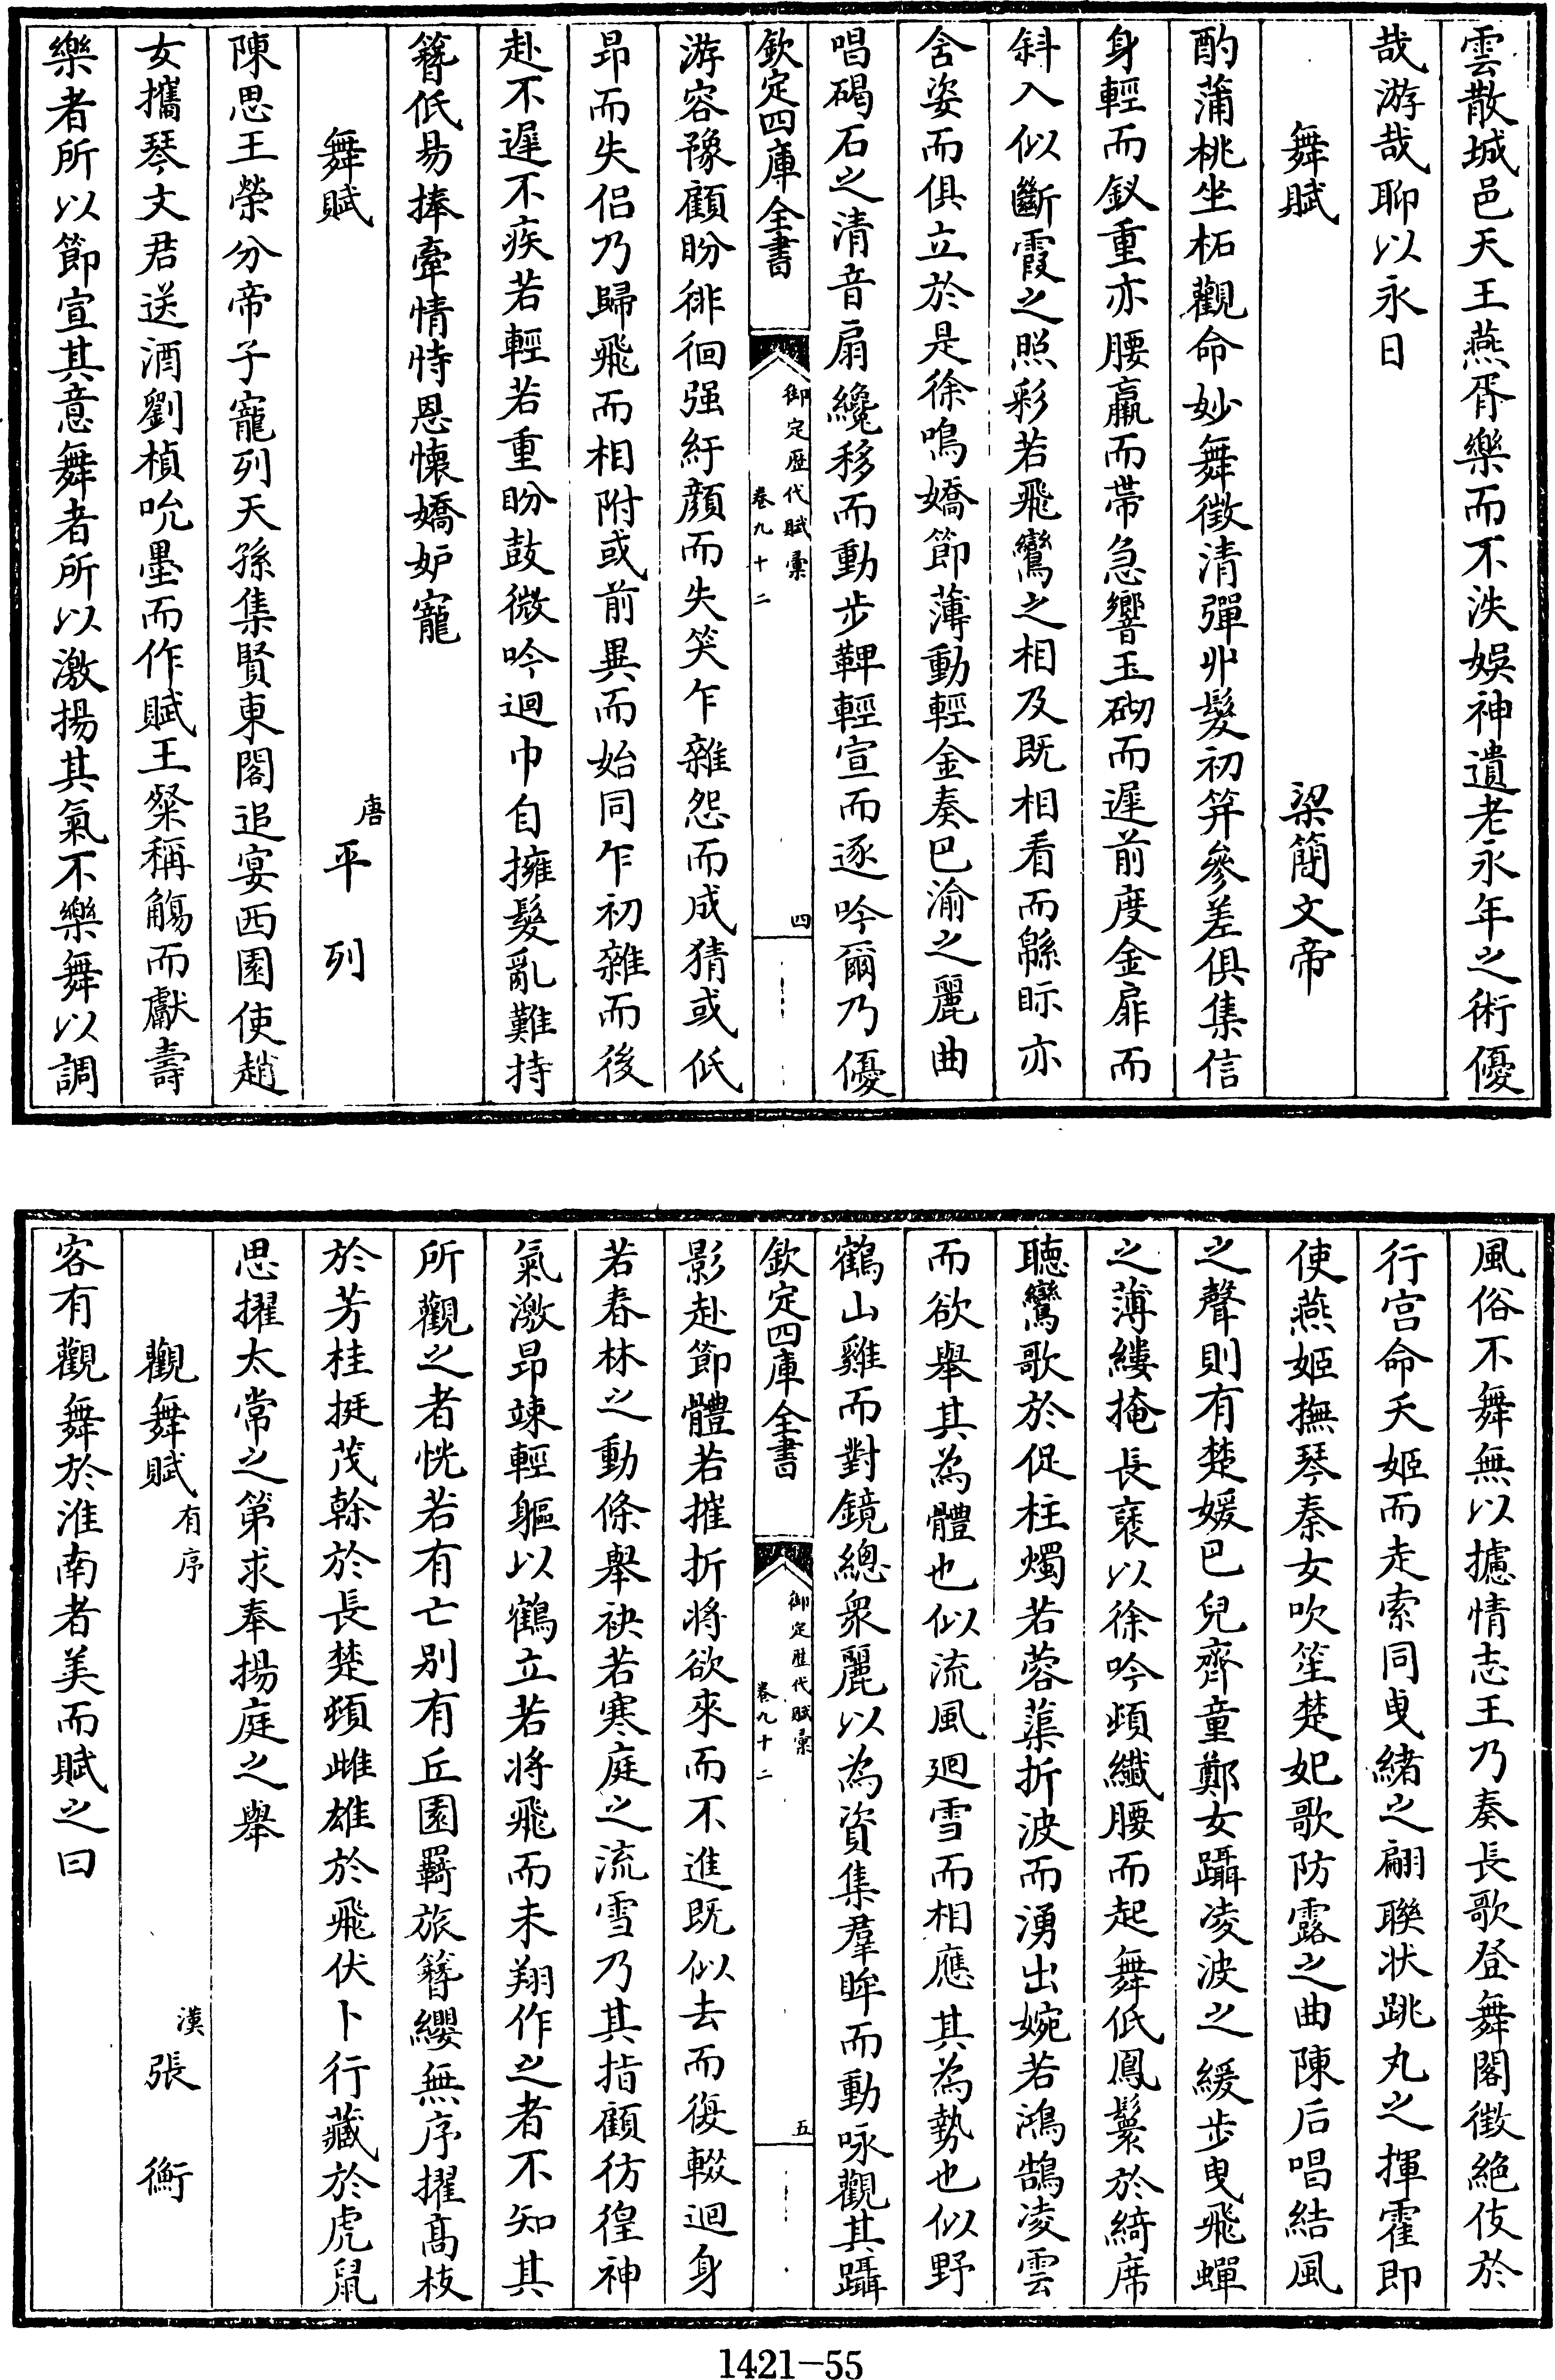 雲散城邑天王燕胥樂而不泆娛神遺老永年之術優
哉游哉聊以永日
舞賦 梁簡文帝
酌蒲桃坐柘觀命妙舞徵清彈丱髮初笄參差俱集信
身輕而釵重亦腰羸而帶急響玉砌而遲前度金扉而
斜入似斷霞之照彩若飛鸞之相及既相看而緜眎亦
含姿而俱立於是徐鳴嬌節薄動輕金奏巴渝之麗曲
唱碣石之清音扇纔移而動步鞞輕宣而逐吟爾乃優
欽定四庫全書 御定歷代賦彙 卷九十二 四
游容豫顧盼徘徊强紆顔而失笑乍雜怨而成猜或低
昻而失侣乃歸飛而相附或前異而始同乍初雜而後
赴不遲不疾若輕若重盼鼓微吟迴巾自擁髮亂難持
簪低易捧牽情恃恩懷嬌妒寵
舞賦 唐 平列
陳思王榮分帝子寵列天孫集賢東閣追宴西園使趙
女攜琴文君送酒劉楨吮墨而作賦王粲稱觴而獻壽
樂者所以節宣其意舞者所以激揚其氣不樂舞以調
風俗不舞無以攄情志王乃奏長歌登舞閣徵絶伎於
行宫命夭姬而走索同曳緒之翩聯状跳丸之揮霍即
使燕姬撫琴秦女吹笙楚妃歌防露之曲陳后唱結風
之聲則有楚媛巴兒齊童鄭女躡凌波之緩步曳飛蟬
之薄縷掩長袤以徐吟頻纎腰而起舞低鳳鬟於綺席
聽鸞歌於促柱燭若蓉蕖折波而湧出婉若鴻鵠凌雲
而欲舉其為體也似流風廻雪而相應其為勢也似野
鶴山雞而對鏡總衆麗以為資集羣眸而動咏觀其躡
欽定四庫全書 御定歷代賦彙 卷九十二 五
影赴節體若摧折將欲來而不進既似去而復輟迴身
若春林之動條舉袂若寒庭之流雪乃其指顧彷徨神
氣激昻竦輕軀以鶴立若將飛而未翔作之者不知其
所觀之者恍若有亡别有丘園羇旅簪纓無序擢高枝
於芳桂挺茂榦於長楚頻雌雄於飛伏卜行藏於虎鼠
思擢太常之第求奉揚庭之舉
觀舞賦 有序 漢 張衡
客有觀舞於淮南者美而賦之曰
1421-55